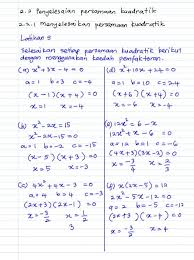 2.2 Penyelesaian persamaan kuadratik
2.2.1 menyelesaikan persamaan kuadratik
Latihan 5
Selesaikan setiap persamaan kuadratik berikut
dengan menggunakan kaedah pemfaktoran.
(a) x² + 3x - 4 = 0
a = 1 b = 3 c = -4
(x - 1)(x + 4) = 0
x = 1 x = -4
(d) x² + 10x + 24 = 0
a = 1 b = 10 c = 24
(x + 6)(x + 4) = 0
x = -6 x = -4
(b) x² - 2x = 15
x² - 2x - 15 = 0
a = 1 b = -2 c = -15
(x - 5)(x + 3) = 0
x = 5 x = -3
(e) 12x² + x = 6
12x² + x - 6 = 0
a = 12 b = 1 c = -6
(4x + 3)(3x - 2) = 0
x = -3/4 x = 2/3
(c) 4x² + 4x - 3 = 0
a = 4 b = 4 c = -3
(2x + 3)(2x - 1) = 0
x = -3/2
(f) x(2x - 5) = 12
2x² - 5x - 12 = 0
(2x + 3)(x - 4) = 0
x = 4